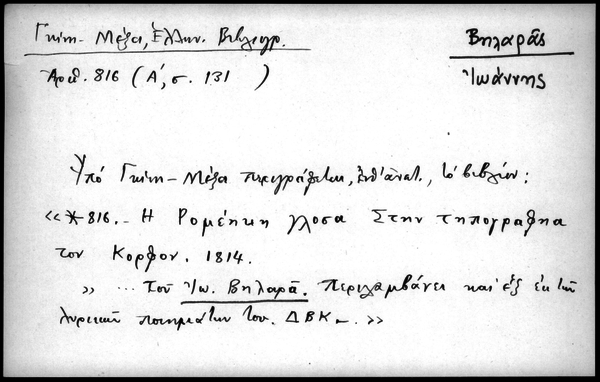 Γκίνη - Μέξα, Ἑλλην. Βιβλιογρ.
Βηλαρᾶς
Ἀριθ. 816 (Α΄, σ. 131 )
Ἰωάννης
Ὑπό Γκίνη - Μέξα περιγράφεται, , τό βιβλίον:
«*816. - Η Ρομέηκη γλοσα Στην τηπογραφηα
τον Κορφον. 1814.
» ... Τοῦ Ἰω. Βηλαρᾶ. Περιλαμβάνει καί ἕξ ἐκ τῶν
λυρικῶν ποιημάτων του. ΔΒΚ . »